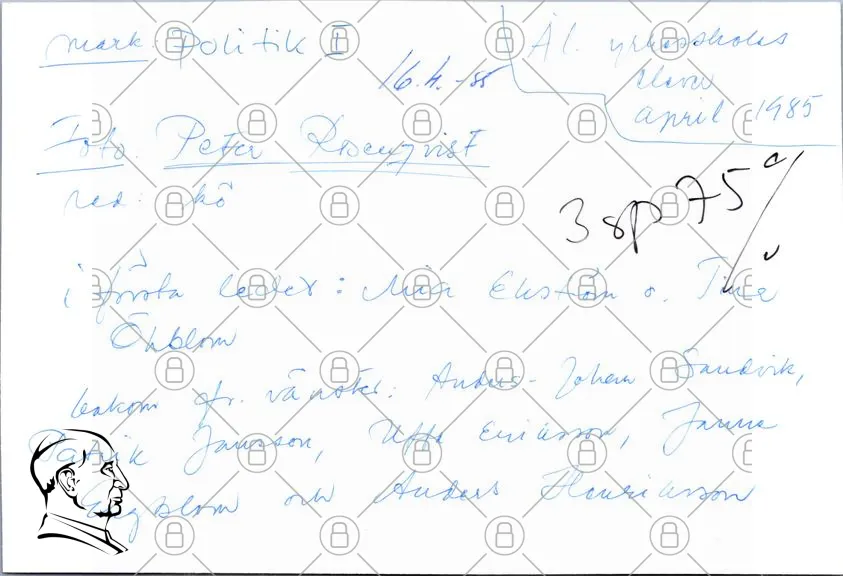 mark. Politik I
16.4.-85
Ål. yrkesskolas
elever
april 1985
Foto. Peter Rosenqvist
red: kö
3 sp 75 %
i första ledet: Mia Ekström o. Tina
Öhblom
bakom fr. vänster: Anders-Johan Sandvik,
Patrik Jansson, Uffe Eriksson, Janne
Engblom och Anders Henriksson